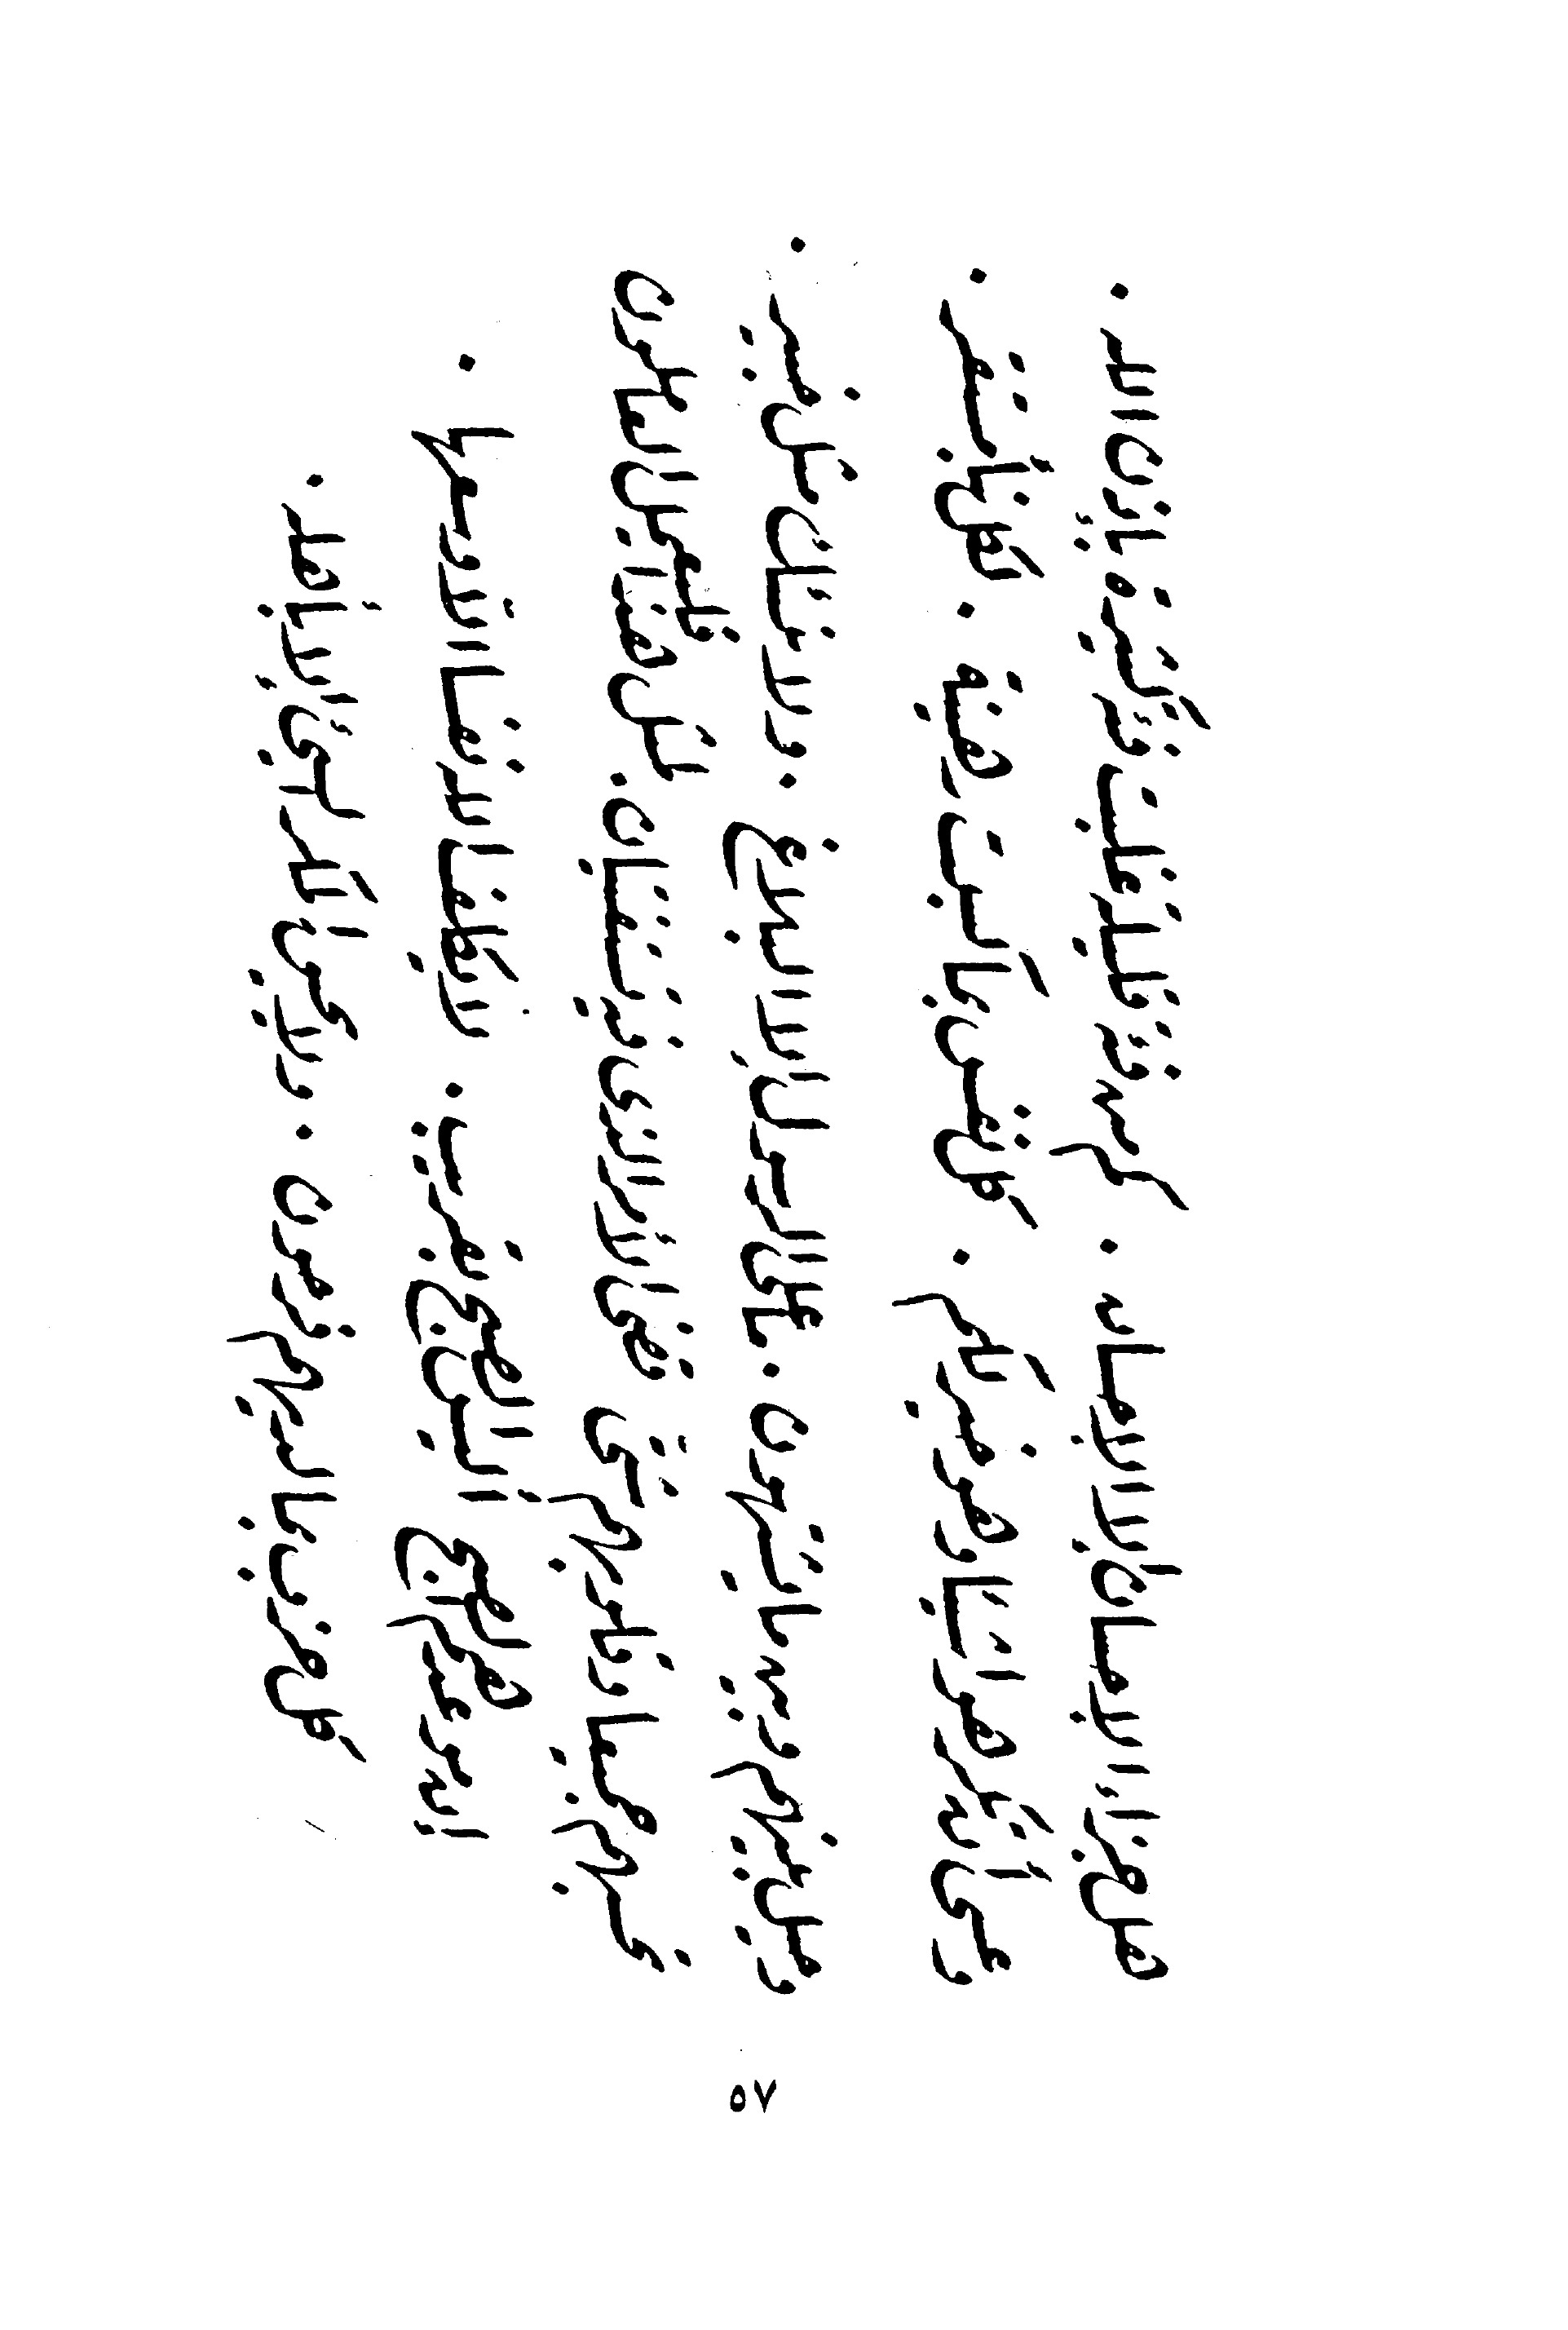 هل جزاء الإحسان إلا الإحسان . كم من فئة قليلة غلبت فئة كثيرة بإذن الله .
وعسى أن تكرهوا شيئا وهو خير لكم . كل نفس بما كسبت رهينة . لكل نبأ مستقر .
وحيل بينهم وبين ما يشتهون . ما على الرسول إلا البلاغ . ولا ينبئك مثل خبير .
تحسبهم جميعا وقلوبهم شتى قضي الأمر الذي فيه تستفتيان . لمثل هذا فليعمل العاملون
إن موعدهم الصبح أليس الصبح بقريب . لا يكلف الله نفسا إلا وسعها .
كل حزب بما لديهم فرحون . ولا يحيق المكر السيئ إلا بأهله .
٥٧